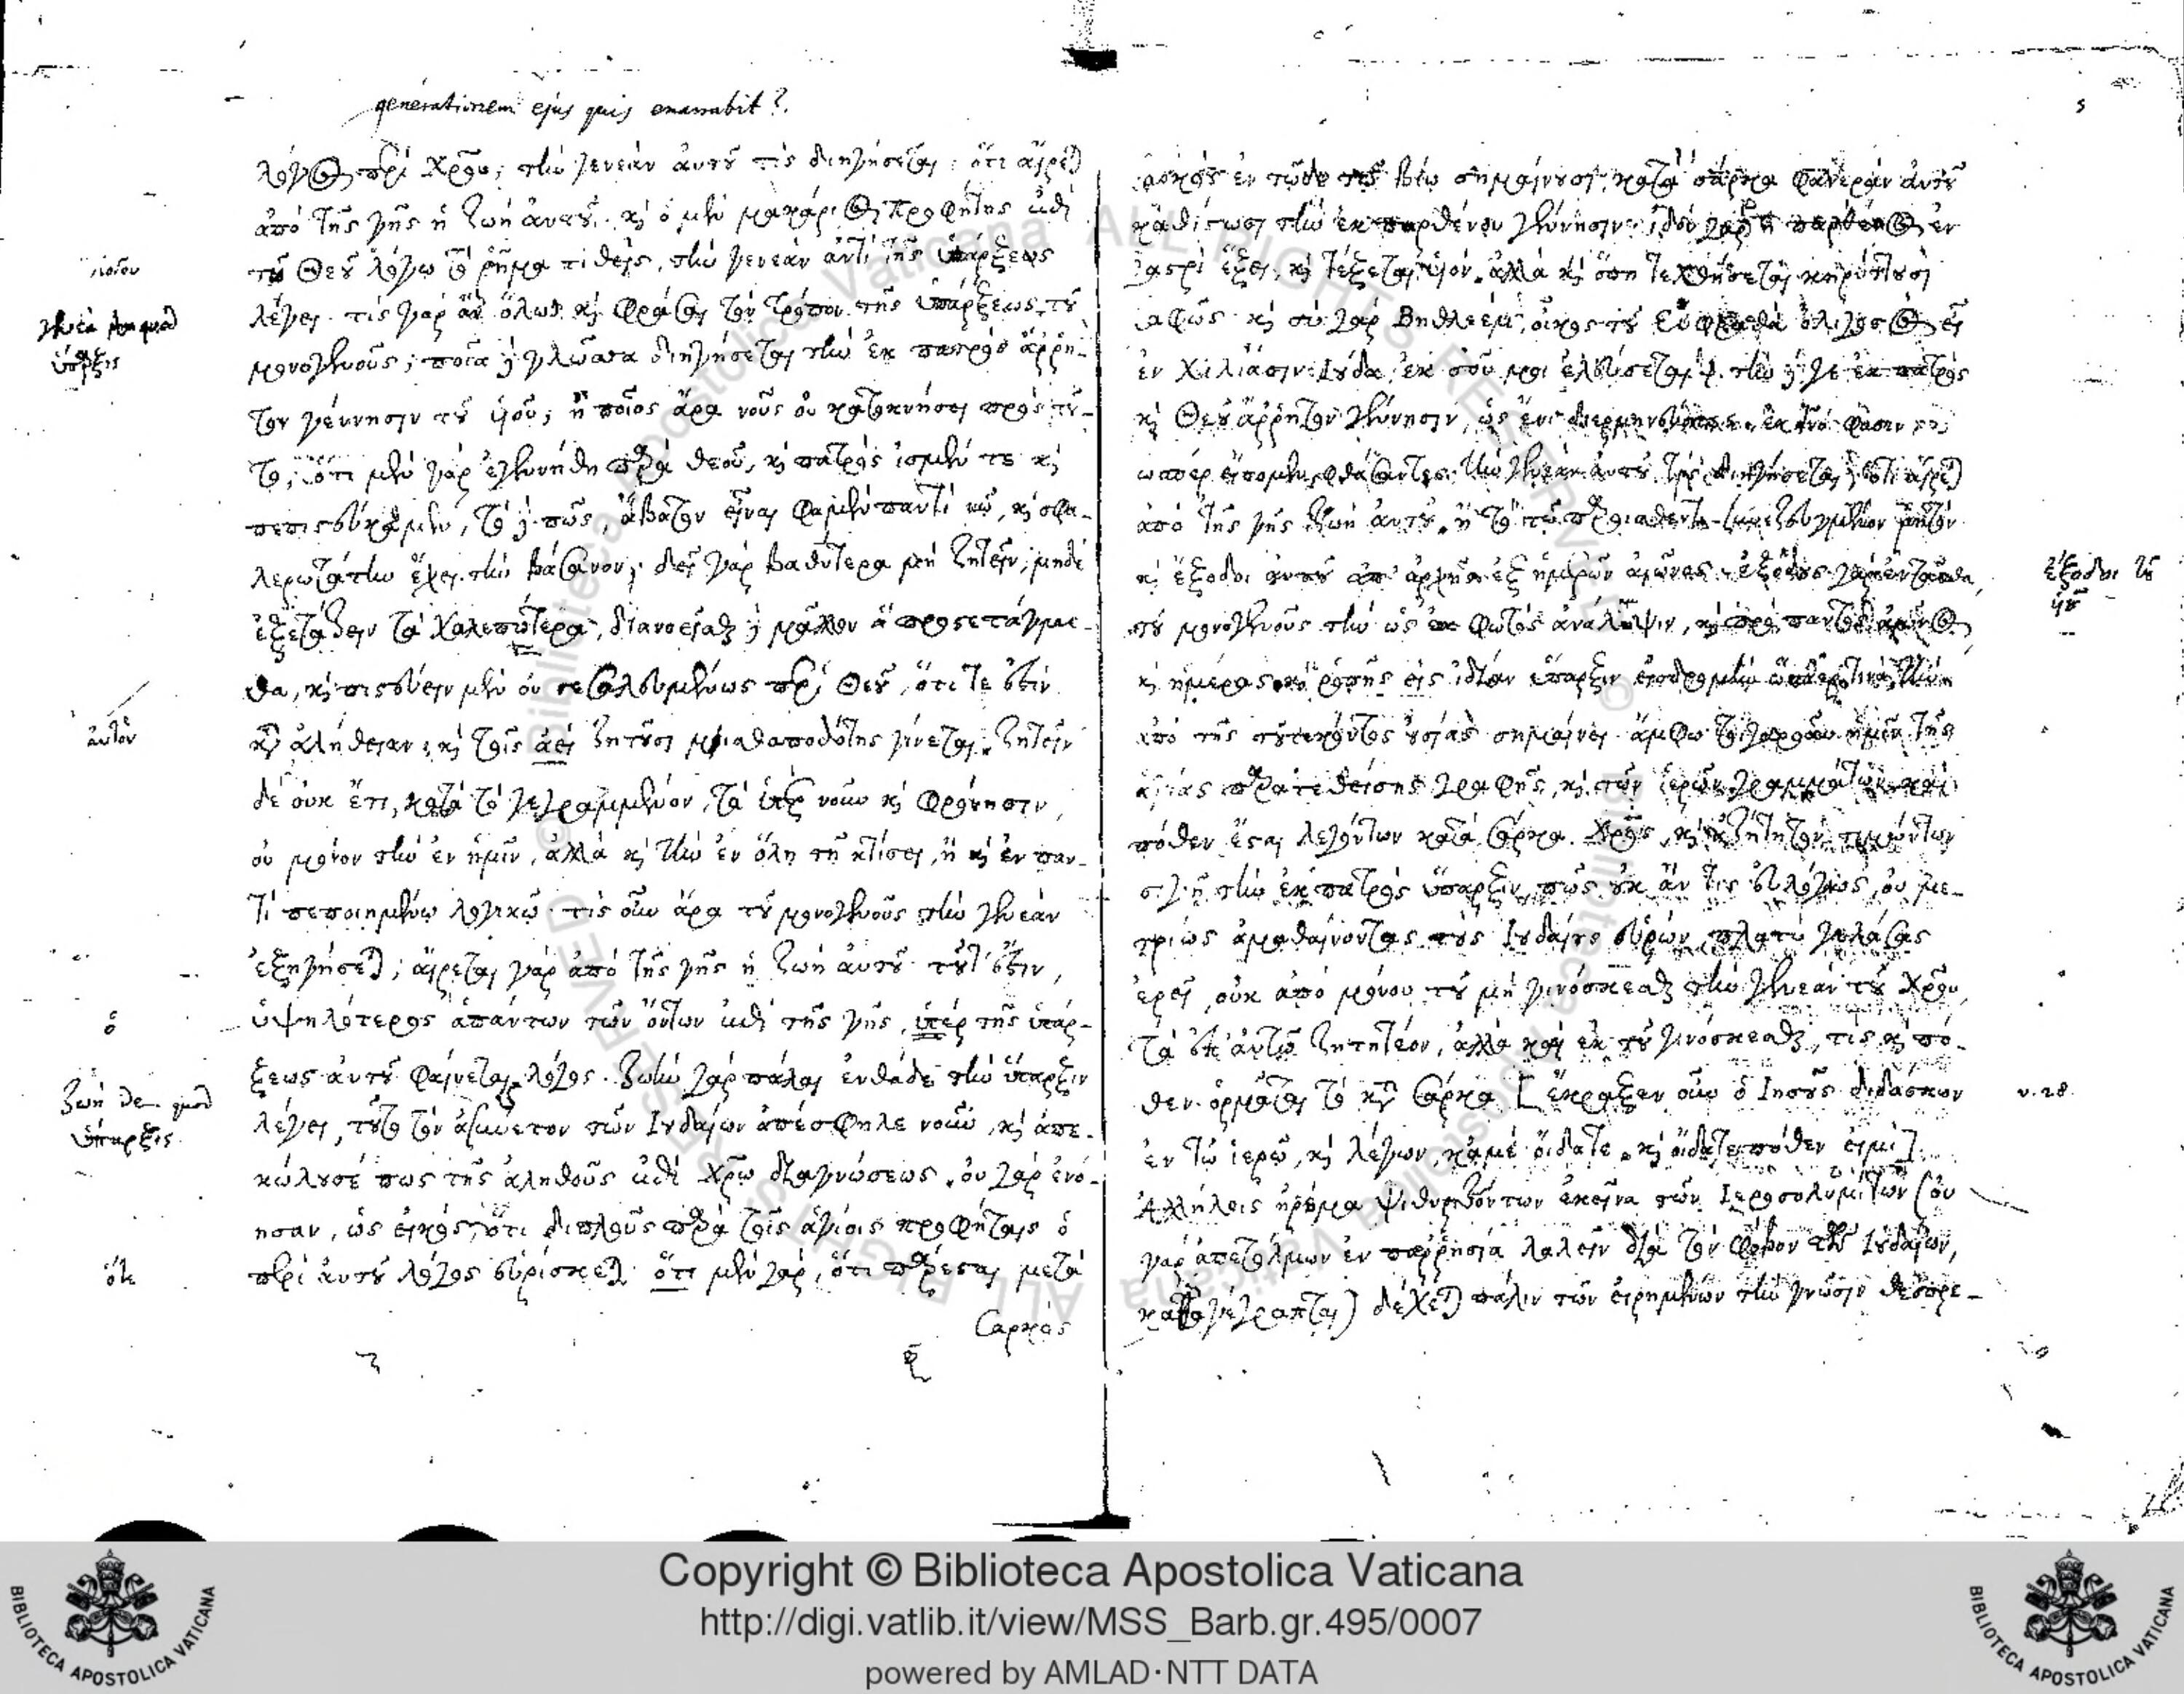 generationem ejus quis enarrabit?
λόγος περὶ Χριστοῦ, τὴν γενεὰν αὐτοῦ τίς διηγήσεται; ὅτι αἴρεται
ἀπὸ τῆς γῆς ἡ ζωὴ αὐτοῦ. καὶ ὁ μὲν μακάριος προφήτης ἐπὶ
τῷ Θεοῦ λόγῳ τὸ ῥῆμα τιθεὶς, τὴν γενεὰν ἀντὶ τῆς ὑπάρξεως
λέγει. τίς γὰρ ἂν ὅλως καὶ φράσαι τὸν τρόπον τῆς ὑπάρξεως τοῦ
μονογενοῦς; ποία δὲ γλῶσσα διηγήσεται τὴν ἐκ πατρὸς ἄρρη-
τον γέννησιν τοῦ υἱοῦ; ἢ ποῖος ἄρα νοῦς οὐ κατοκνήσει πρὸς τοῦ-
το; ὅτι μὲν γὰρ ἐγεννήθη παρὰ θεοῦ, καὶ πατρὸς ἴσμεν τε καὶ
πεπιστεύκαμεν, τὸ δὲ πῶς, ἄβατον εἶναι φαμὲν παντὶ νῷ, καὶ σφα-
λερωτάτην ἔχει τὴν βάσανον. δεῖ γὰρ βαθύτερα μὴ ζητεῖν, μηδὲ
ἐξετάζειν τὰ χαλεπώτερα, διανοεῖσθαι δὲ μᾶλλον ἃ προσετάγμε-
θα, καὶ πιστεύειν μὲν οὐ σεσαλευμένως περὶ Θεοῦ, ὅτι τέ ἐστιν
κατὰ ἀλήθειαν, καὶ τοῖς ἀεὶ ζητοῦσι μισθαποδότης γίνεται. ζητεῖν
δὲ οὐκ ἔτι, κατὰ τὸ γεγραμμένον, τὰ ὑπὲρ νοῦν καὶ φρόνησιν,
οὐ μόνον τὴν ἐν ἡμῖν, ἀλλὰ καὶ τὴν ἐν ὅλῃ τῇ κτίσει, ἢ καὶ ἐν παν-
τὶ πεποιημένῳ λογικῷ. τίς οὖν ἄρα τοῦ μονογενοῦς τὴν γενεὰν
ἐξηγήσεται; αἴρεται γὰρ ἀπὸ τῆς γῆς ἡ ζωὴ αὐτοῦ. τοῦτ' ἔστιν,
ὑψηλότερος ἁπάντων τῶν ὄντων ἐπὶ τῆς γῆς, ὑπὲρ τῆς ὑπάρ-
ξεως αὐτοῦ φαίνεται λόγος. ζωὴν γὰρ πάλαι ἐνθάδε τὴν ὕπαρξιν
λέγει, τοῦτο τὸν ἀσύνετον τῶν Ἰουδαίων ἀπέσφηλε νοῦν, καὶ ἀπε-
κώλυσέ πως τῆς ἀληθοῦς ἐπὶ Χριστῷ διαγνώσεως. οὐ γὰρ ἐνό-
ησαν, ὡς εἰκὸς, ὅτι διπλοῦς παρὰ τοῖς ἁγίοις προφήταις ὁ
περὶ αὐτοῦ λόγος εὑρίσκεται. ὅτι μὲν γὰρ, ὅτι παρέσται μετὰ
σαρκὸς
γενεὰ
ὕπαρξις
αὐτὸν
ὁ
ζωὴ
ὕπαρξις
ὅτε
5
σαρκὸς ἐν τῷδε τῷ βίῳ σημαίνουσι, κατὰ σάρκα φανερὰν αὐτοῦ
καθίστωσι τὴν ἐκ παρθένου γέννησιν. ἰδοὺ γὰρ ἡ παρθένος ἐν
γαστρὶ ἕξει, καὶ τέξεται υἱόν. ἀλλὰ καὶ ὅπη τεχθήσεται κηρύττουσι
σαφῶς. καὶ σὺ γὰρ Βηθλεὲμ, οἶκος τοῦ Εὐφραθὰ ὀλιγοστὸς εἶ
ἐν χιλιάσιν Ἰούδα, ἐκ σοῦ μοι ἐλεύσεται. τὴν δέ γε ἐκ πατρὸς
καὶ Θεοῦ ἄρρητον γέννησιν, ὡς ἔνι διερμηνεύοντες
εἴπομεν φθάσαντες. τὴν γενεὰν αὐτοῦ τίς διηγήσεται; ὅτι αἴρεται
ἀπὸ τῆς γῆς ἡ ζωὴ αὐτοῦ
καὶ ἔξοδοι αὐτοῦ ἀπ' ἀρχῆς ἐξ ἡμερῶν αἰῶνος. ἐξόδους γὰρ ἐνταῦθα,
τοῦ μονογενοῦς τὴν ὡς ἐκ φωτὸς ἀνάλαμψιν, καὶ πρὸ παντὸς αἰῶνος
καὶ ἡμέρας καὶ ῥοπῆς εἰς ἰδίαν ὕπαρξιν
ἀπὸ τῆς τοῦ τεκόντος οὐσίας σημαίνει.
ἁγίας παρατεθείσης γραφῆς, καὶ τῶν ἱερῶν γραμμάτων καὶ
πόθεν ἔσται λεγόντων κατὰ σάρκα Χριστὸς, καὶ τιμώντων
σιγῇ τὴν ἐκ πατρὸς ὕπαρξιν, πῶς οὐκ ἄν τις εὐλόγως, οὐ με-
τρίως ἀμαθαίνοντας τοὺς Ἰουδαίους εὑρὼν, πλατὺ γελάσας
ἐρεῖ, οὐκ ἀπὸ μόνου τοῦ μὴ γινώσκεσθαι τὴν γενεὰν τοῦ Χριστοῦ,
τὰ ἐπ' αὐτῷ ζητητέον, ἀλλὰ καὶ ἐκ τοῦ γινώσκεσθαι, τίς καὶ πό-
θεν ὁρμᾶται τὸ κατὰ σάρκα [ἔκραξεν οὖν ὁ Ἰησοῦς διδάσκων
ἐν τῷ ἱερῷ, καὶ λέγων, κἀμὲ οἴδατε, καὶ οἴδατε πόθεν εἰμί].
Ἀλλήλοις ἠρέμα ψιθυριζόντων ἐκεῖνα τῶν Ἱεροσολυμιτῶν (οὐ
γὰρ ἀπετόλμων ἐν παρρησίᾳ λαλεῖν διὰ τὸν φόβον τῶν Ἰουδαίων,
καθὰ γέγραπται) δέχεται πάλιν τῶν εἰρημένων τὴν γνῶσιν θεοπρε-
ἔξοδοι τοῦ
υἱοῦ
v. 28.
Copyright © Biblioteca Apostolica Vaticana
http://digi.vatlib.it/view/MSS_Barb.gr.495/0007
powered by AMLAD·NTT DATA